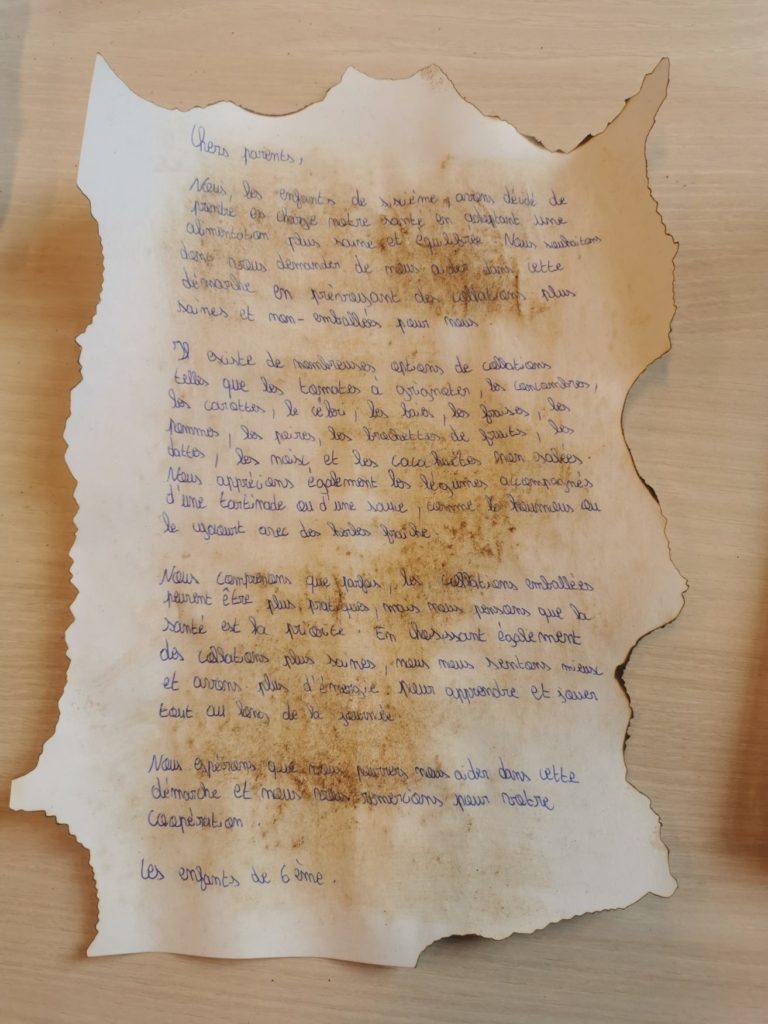 Chers parents,
Nous, les enfants de sixième, avons décidé de
prendre en charge notre santé en adoptant une
alimentation plus saine et équilibrée. Nous souhaitons
donc vous demander de nous aider dans cette
démarche en prévoyant des collations plus
saines et non-emballées pour nous.
Il existe de nombreuses options de collations
telles que les tomates à grignoter, les concombres,
les carottes, le céleri, les baies, les fraises, les
pommes, les poires, les brochettes de fruits, les
dattes, les noix, et les cacahuètes non salées.
Nous apprécions également les légumes accompagnés
d'une tartinade ou d'une sauce, comme le houmous ou
le yaourt avec des herbes fraîche.
Nous comprenons que parfois, les collations emballées
peuvent être plus pratiques, mais nous pensons que la
santé est la priorité. En choisissant également
des collations plus saines, nous nous sentons mieux
et avons plus d'énergie pour apprendre et jouer
tout au long de la journée.
Nous espérons que vous pourrez nous aider dans cette
démarche et nous vous remercions pour votre
coopération.
Les enfants de 6ème.